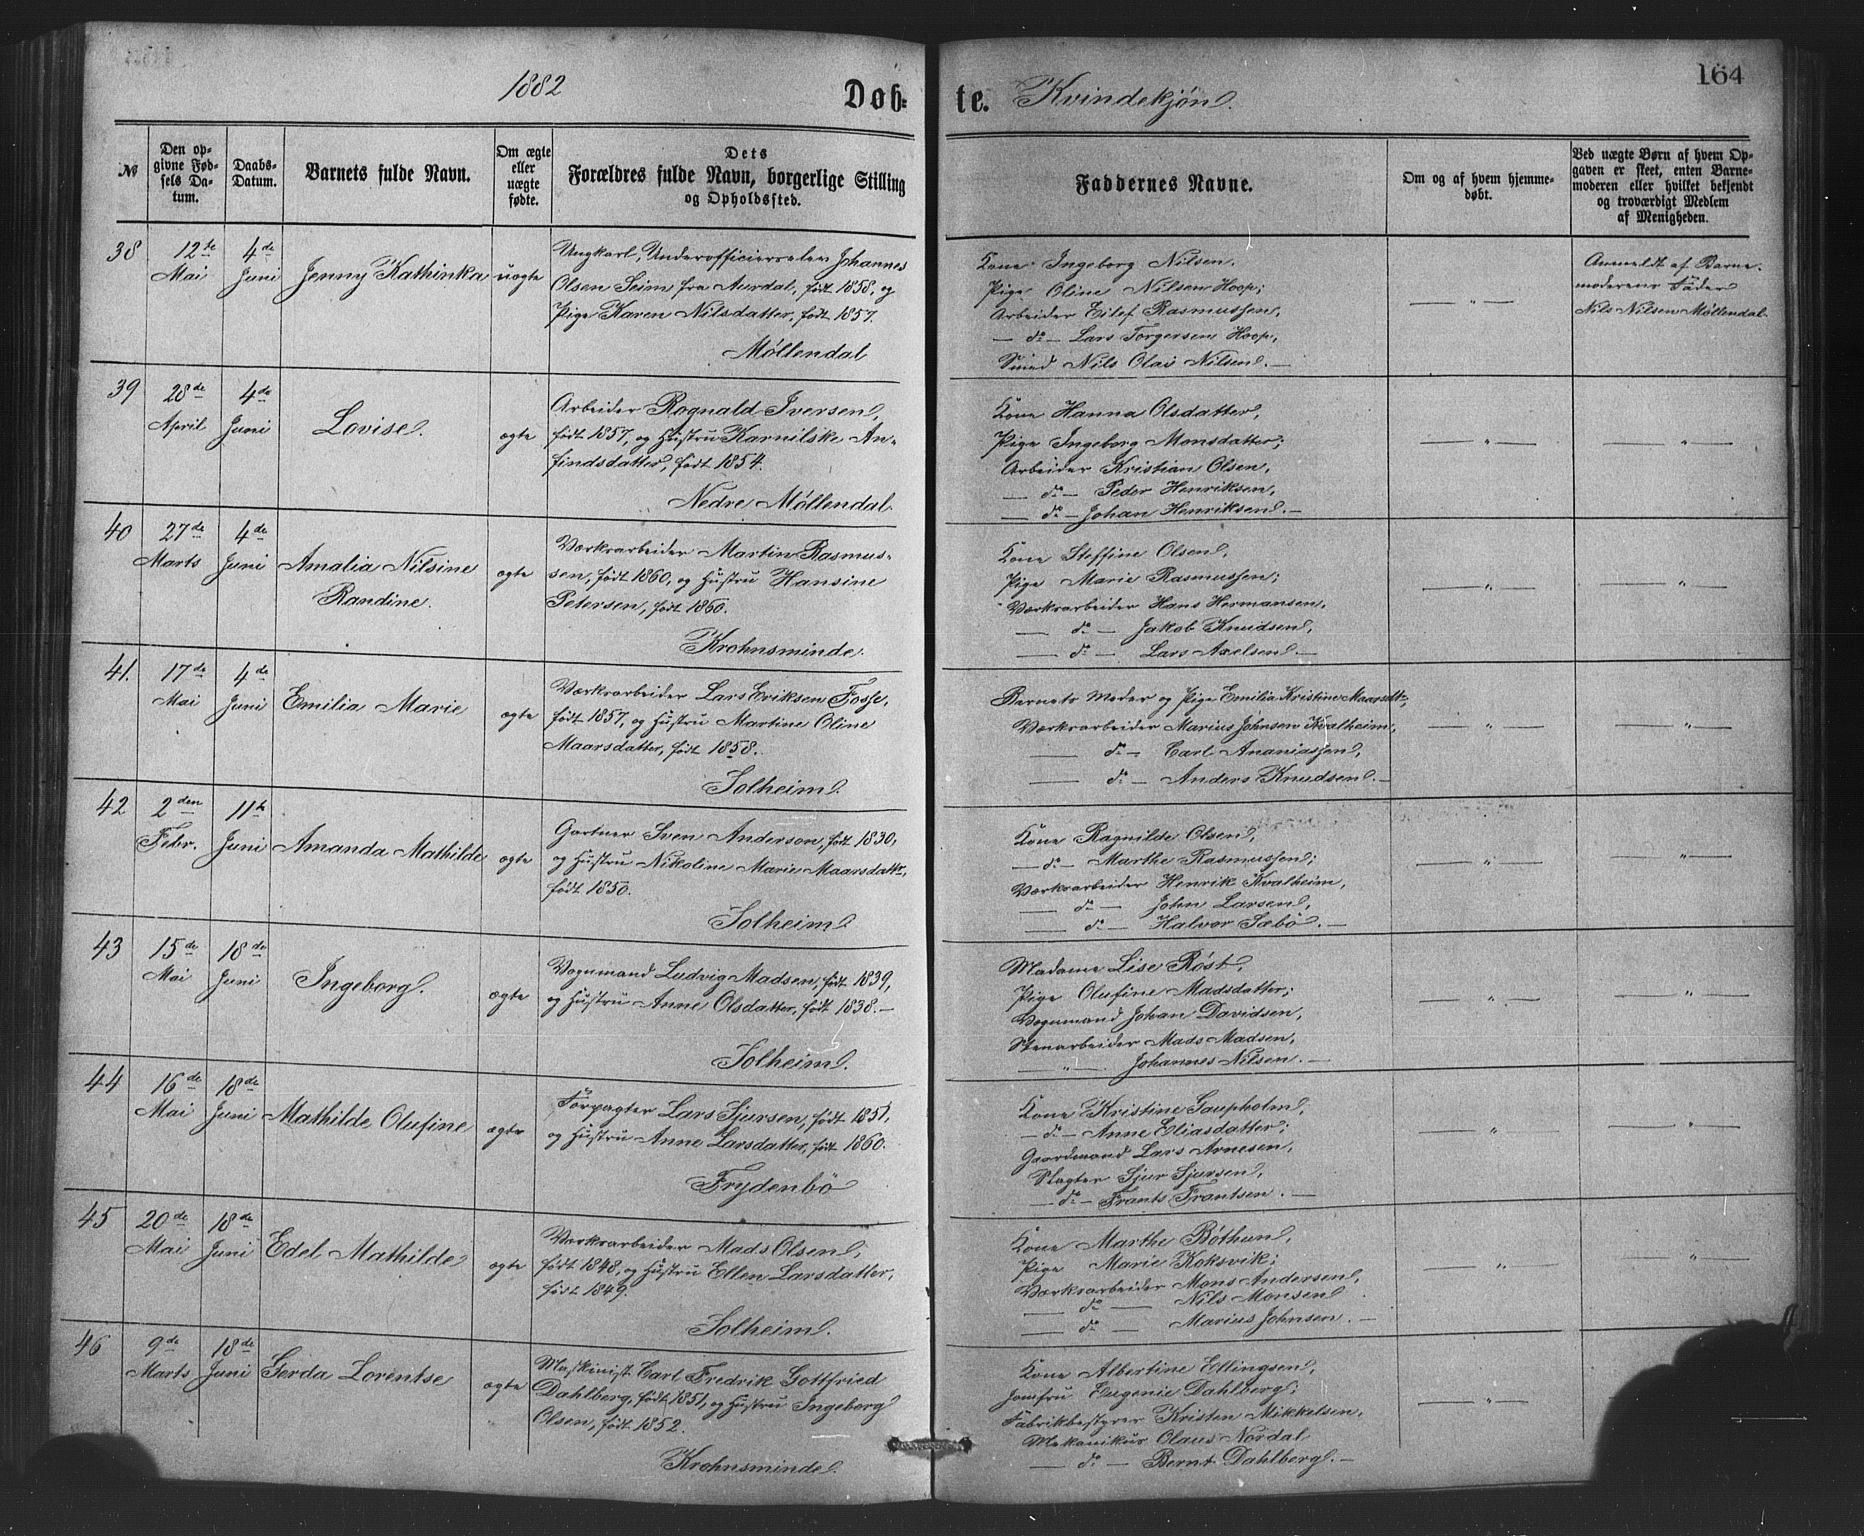 1882
Döb-
te. Kvindekjön.
164
№
Den op-
givne Fød-
sels Da-
tum.
Daabs-
Datum.
Barnets fulde Navn.
Om ægte
eller
uægte
fødte.
Dets
Forældres fulde Navn, borgerlige Stilling
og Opholdssted.
Faddernes Navne.
Om og af hvem hjemme-
døbt.
Ved uægte Børn af hvem Op-
gaven er skeet, enten Barne-
moderen eller hvilket bekjendt
og troværdigt Medlem
af Menigheden.
38
12te
Mai
4de
Juni
Jenny Kathinka
uægte
Ungkarl, Underofficierselev Johannes
Olsen Seim fra Aurdal, født 1858, og
Pige Karen Nilsdatter, født 1857.
Møllendal
Kone Ingeborg Nilsen,
Pige Oline Nilsen Hoop;
Arbeider Eilef Rasmussen,
— do — Lars Torgersen Hoop,
Smed Nils Olai Nilsen. —
— " —
Anmeldt af Barne-
moderens Fader
Nils Nilsen Møllendal
39
28de
April
4de
Juni
Lovise.
ægte
Arbeider Rognald Iversen,
født 1857, og Hustru Karnilske An-
findsdatter, født 1854.
Nedre Møllendal.
Kone Hanna Olsdatter,
Pige Ingeborg Monsdatter;
Arbeider Kristian Olsen,
— do — Peder Henriksen,
— do — Johan Henriksen. —
— " —
— " —
40
27de
Marts
4de
Juni
Amalia Nilsine
Randine.
ægte
Værksarbeider Martin Rasmus-
sen, født 1860, og Hustru Hansine
Petersen, født 1860.
Krohnsminde.
Kone Steffine Olsen,
Pige Marie Rasmussen;
Værksarbeider Hans Hermansen,
— do — Jakob Knudsen,
— do — Lars Axelsen. —
— " —
— " —
41.
17de
Mai
4de
Juni
Emilia Marie
ægte
Værksarbeider Lars Eriksen Fosse,
født 1857, og Hustru Martine Oline
Maarsdatter, født 1858.
Solheim.
Barnets Moder og Pige Emilia Kristine Maarsdttr,
Værksarbeider Marius Johnsen Kvalheim,
— do — Carl Ananiassen,
— do — Anders Knudsen. —
— " —
— " —
42
2den
Febr.
11te
Juni
Amanda Mathilde
ægte
Gartner Sven Anderson, født 1830,
og Hustru Nikoline Marie Maarsdattr,
født 1850.
Solheim.
Kone Ragnilde Olsen,
— do — Marthe Rasmussen;
Værksarbeider Henrik Kvalheim,
— do — John Larsen,
— do — Halvor Sæbö. —
— " —
— " —
43
15de
Mai
18de
Juni
Ingeborg.
ægte
Vognmand Ludvig Madsen, født 1839,
og Hustru Anne Olsdatter, født 1838. —
Solheim.
Madame Lise Röst,
Pige Olufine Madsdatter;
Vognmand Johan Davidsen,
Stenarbeider Mads Madsen,
— " — Johannes Nilsen. —
— " —
— " —
44
16de
Mai
18de
Juni
Mathilde Olufine
ægte
Forpagter Lars Sjursen, født 1851,
og Hustru Anne Larsdatter, født 1860.
Frydenbö
Kone Kristine Gaupholm,
— do — Anne Eliasdatter;
Gaardmand Lars Arnesen,
Slagter Sjur Sjursen,
— do — Frants Frantsen. —
— " —
— " —
45
20de
Mai
18de
Juni
Edel Mathilde
ægte
Værksarbeider Mads Olsen,
født 1848, og Hustru Ellen Larsdatter,
født 1849.
Solheim.
Kone Marthe Böthun,
Pige Marie Koksvik;
Værksarbeider Mons Andersen,
— do — Nils Monsen
— do — Marius Johnsen. —
— " —
— " —
46
9de
Marts
18de
Juni
Gerda Lorentse
ægte
Maskinist Carl Fredrik Gottfried
Dahlberg, født 1851, og Hustru Ingeborg
Olsen, født 1852.
Krohnsminde.
Kone Albertine Ellingsen,
Jomfru Eugenie Dahlberg;
Fabrikbestyrer Kristen Mikkelsen,
Mekanikus Olaus Nordal
— do — Bernt Dahlberg. —
— " —